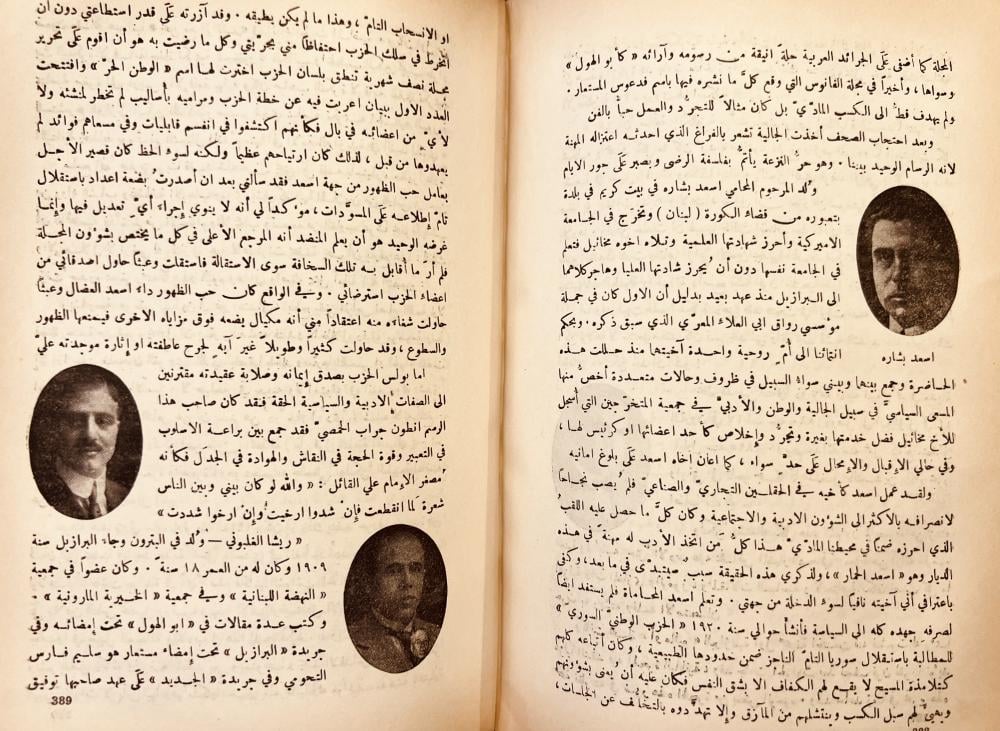 المجلة كما أضفى على الجرائد العربية حلة انيقة من رسومه وآرائه « كأبو الهول »
وسواها ، وأخيراً في مجلة الفانوس التي وقع كلَّ ما نشره فيها باسم فدعوس المستعار .
ولم يهدف قطُّ الى الكسب المادّيّ بل كان مثالاً للتجرُّد والعمل حباً بالفن
وبعد احتجاب الصحف أخذت الجالية تشعر بالفراغ الذي احدثه اعتزاله المهنة
لانه الرسام الوحيد بيننا . وهو حرُّ النزعة يأتمُّ بفلسفة الرضى ويصبر على جور الايام
وُلد المرحوم المحامي اسعد بشاره في بيت كريم في بلدة
بتعبوره من قضاء الكورة ( لبنان ) وتخرَّج في الجامعة
الاميركية وأحرز شهادتها العلمية وتلاه اخوه مخائيل فتعلم
في الجامعة نفسها دون أن يُحرز شادتها العليا وهاجر كلاهما
الى البرازيل منذ عهد بعيد بدليل أن الاول كان في جملة
مؤسسي رواق ابي العلاء المعرّي الذي سبق ذكره . وبحكم
انتمائنا الى أُمّ روحية واحدة آخيتها منذ حللت هذه
اسعد بشاره
الحاضرة وجمع بينها وبيني سواءُ السبيل في ظروف وحالات متعددة أخصُّ منها
المسعى السياسيَّ في سبيل الجالية والوطن والأدبيَّ في جمعية المتخرّجين التي أسجل
للأخ مخائيل فضل خدمتها بغيرة وتجرُّد وإخلاص كأحد اعضائها او كرئيس لها ،
وفي حالي الإقبال والإمحال على حدٍّ سواء ، كما اعان اخاه اسعد على بلوغ امانيه
ولقد عمل اسعد كأخيه في الحقلين التجاريّ والصناعيّ فلم يُصب نجاحاً
لانصرافه بالاكثر الى الشؤون الادبية والاجتماعية وكان كلَّ ما حصل عليه اللقبُ
الذي احرزه ضمناً في محيطنا المادّيّ هذا كلُّ مَن اتخذ الأدب له مهنةً في هذه
الديار وهو « اسعد الحمار » ، ولذكري هذه الحقيقة سبب سيتبدَّى في ما بعد ، وكفى
باعترافي أني آخيته نافياً لسوء الدخلة من جهتي . وتعلم اسعد المحاماة فلم يستفد ايضاً
لصرفه جهده كله الى السياسة فأنشأ حوالي سنة ١٩٢٠ « الحزب الوطنيَّ السوريَّ »
للمطالبة باستقلال سوريا التامّ الناجز ضمن حدودها الطبيعية ، وكان أتباعه كلهم
كتلامذة المسيح لا يقع لهم الكفاف الا بشق النفس فكان عليه أن يعنى بشؤونهم
ويهيئ لهم سبل الكسب وينتشلهم من المآزق وإلا تهدَّدوه بالتخلُّف عن الجلسات ،
او الانسحاب التامّ ، وهذا ما لم يكن يطيقه . وقد آزرته على قدر استطاعتي دون أن
انخرط في سلك الحزب احتفاظاً مني بحرّيتي وكل ما رضيت به هو أن اقوم على تحرير
مجلة نصف شهرية تنطق بلسان الحزب اخترت لها اسم « الوطن الحرّ » وافتتحت
العدد الاول ببيان اعربت فيه عن خطة الحزب ومراميه بأساليب لم تخطر لمنشئه ولا
لأيٍّ من اعضائه في بال فكأنهم اكتشفوا في انفسهم قابليات وفي مسعاهم فوائد لم
يعهدوها من قبل ، لذلك كان ارتياحهم عظيماً ولكنه لسوء الحظ كان قصير الأجل
بعامل حب الظهور من جهة اسعد فقد سألني بعد ان أصدرتُ بضعة اعداد باستقلال
تامّ إطلاعه على المسوَّدات ، مؤكداً لي أنه لا ينوي إجراء أيِّ تعديل فيها وإنما
غرضه الوحيد هو أن يعلم المنضد أنه المرجع الأعلى في كل ما يختص بشؤون المجلة
فلم أرَ ما أقابل به تلك السخافة سوى الاستقالة فاستقلت وعبثاً حاول اصدقائي من
اعضاء الحزب استرضائي . وفي الواقع كان حب الظهور داءَ اسعد العضال وعبثاً
حاولت شفاءه منه اعتقاداً مني أنه مكيال يضعه فوق مزاياه الاخرى فيمنعها الظهور
والسطوع ، وقد حاولت كثيراً وطويلاً غيرَ آبهٍ لجرح عاطفته او إثارة موجدته عليّ
اما بولس الحزب بصدق إيمانه وصلابة عقيدته مقترنين
الى الصفات الادبية والسياسية الحقة فقد كان صاحب هذا
الرسم انطون جراب الحمصيّ فقد جمع بين براعة الاسلوب
في التعبير وقوة الحجة في النقاش والهوادة في الجدل فكأنه
مصغر الإمام علي القائل : « والله لو كان بيني وبين الناس
شعرة لما انقطعت فإن شدوا ارخيت وإن ارخوا شددت »
« ريشا الغلبوني — وُلد في البترون وجاء البرازيل سنة
١٩٠٩ وكان له من العمر ١٨ سنة . وكان عضواً في جمعية
« النهضة اللبنانية » وفي جمعية « الخيرية المارونية » .
وكتب عدة مقالات في « ابو الهول » تحت إمضائه وفي
جريدة « البرازيل » تحت إمضاء مستعار هو سليم فارس
التحومي وفي جريدة « الجديد » على عهد صاحبها توفيق
389